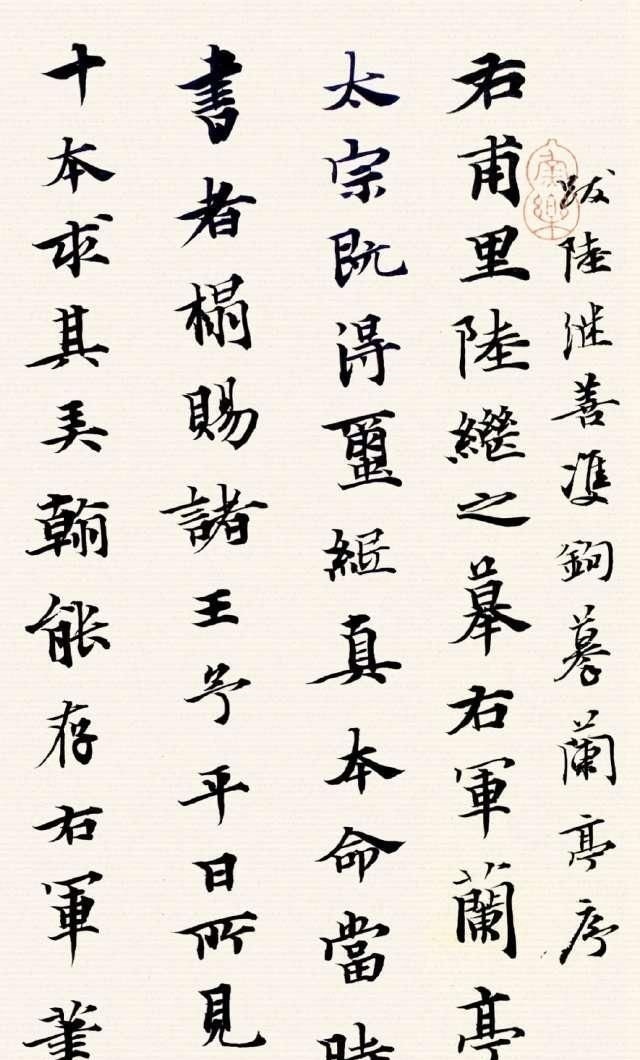 跋陸继善雙鉤摹蘭亭序
右甫里陸繼之摹右軍蘭亭
太宗既得繭紙真本命當時
書者榻賜諸王予平日所見
十本求其美翰能存右軍筆